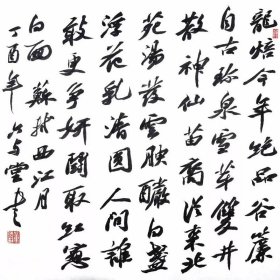 龍焙今年絕品谷簾
自古珍泉雪芽雙井
散神仙苗裔從來北
苑湯發雲腴釅白盞
浮花乳清圓人間誰
敢更爭妍鬭取紅窗
白面 蘇軾西江月
丁酉年